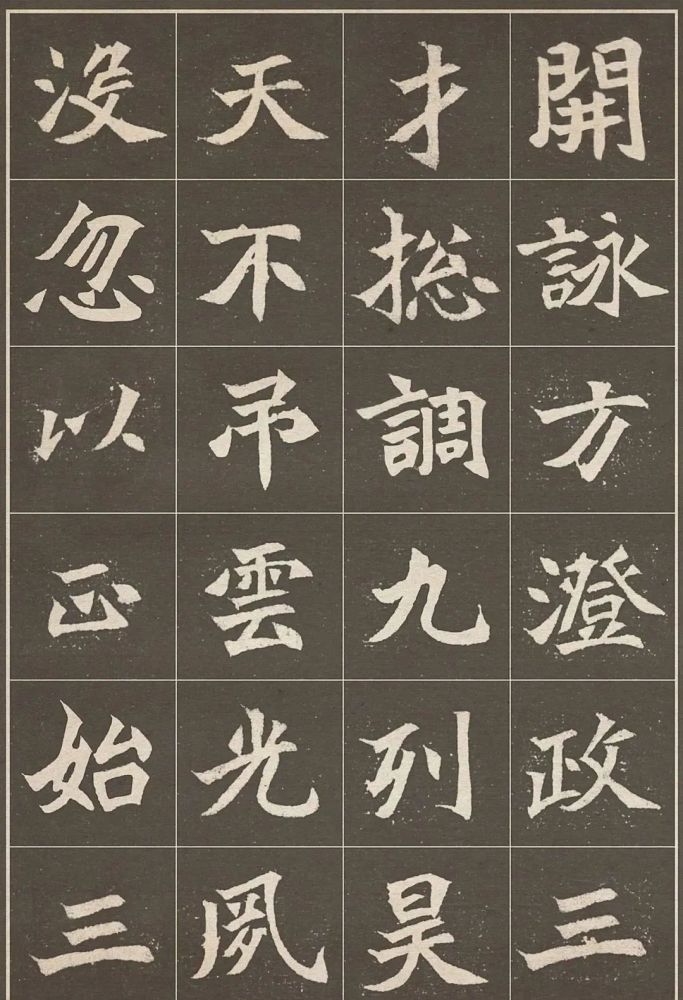 開詠方澄政三
才捴調九列昊
天不吊雲光夙
没忽以正始三